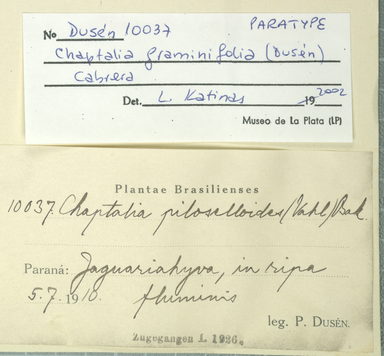 No Dusén 10037 PARATYPE
Chaptalia graminifolia (Dusén)
Cabrera
Det. L. Katinas 19 2002
Museo de La Plata (LP)
Plantae Brasilienses
10037. Chaptalia piloselloides (Vahl) Bak.
Paraná: Jaguariahyva, in ripa
5.7.1910. fluminis
leg. P. DUSÉN.
Zugegangen 1. 1926.